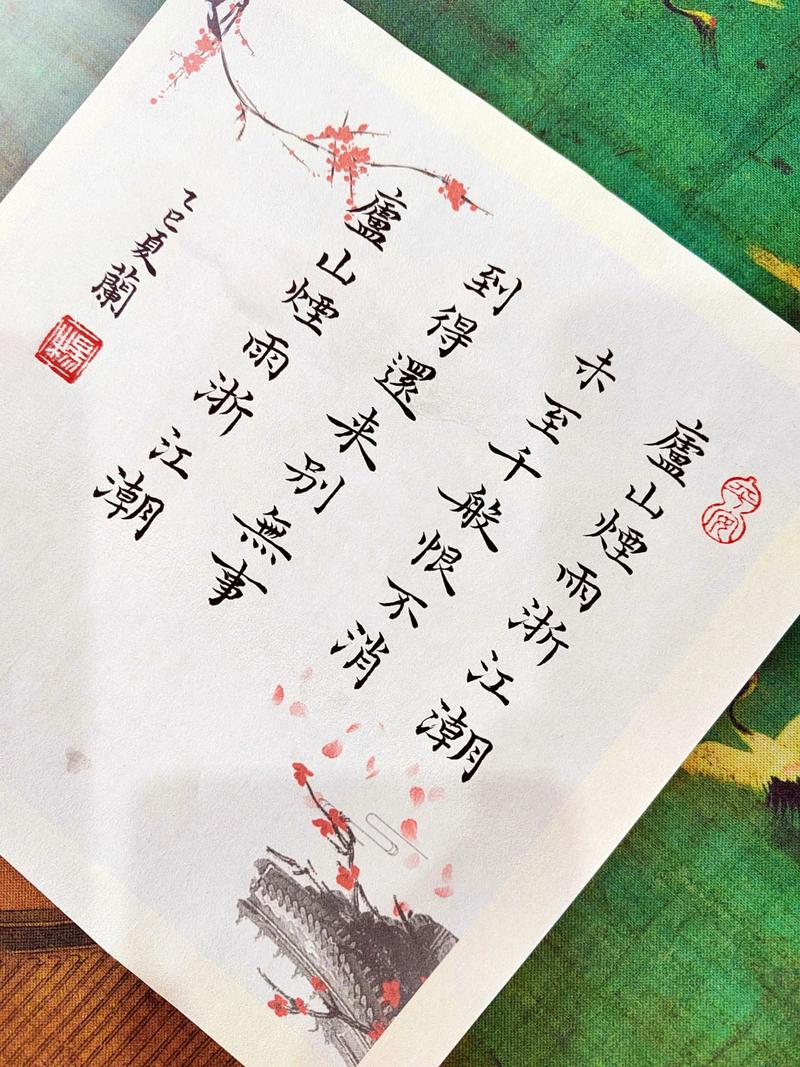 廬山煙雨浙江潮
未至千般恨不消
到得還来别無事
廬山煙雨浙江潮
乙巳夏蘭